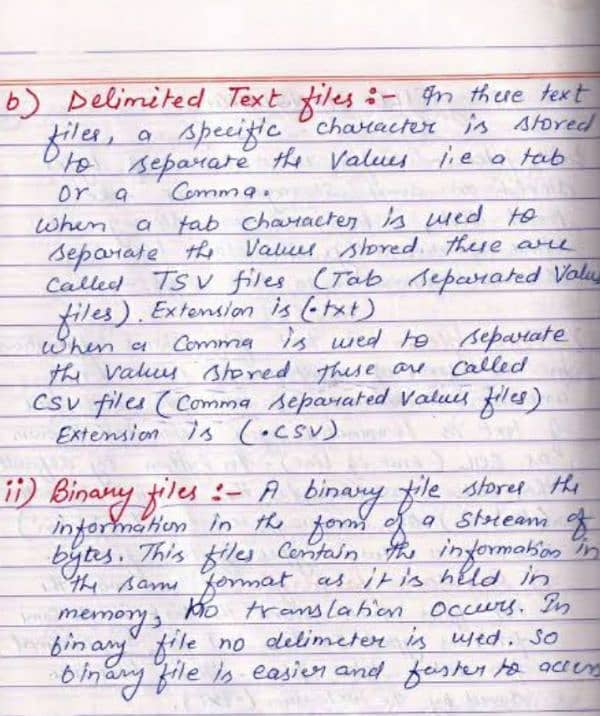 b) Delimited Text files :- In these text
files, a specific character is stored
to separate the Values i.e a tab
or a Comma.
when a tab character is used to
separate the Values stored. these are
called TSV files (Tab separated Values
files). Extension is (.txt)
when a Comma is used to separate
the Values stored these are called
CSV files (Comma separated Values files)
Extension is (.CSV)
ii) Binary files :- A binary file stores the
information in the form of a stream of
bytes. This files Contain the information in
the same format as it is held in
memory, No translation occurs. In
binary file no delimeter is used. So
binary file is easier and faster to access